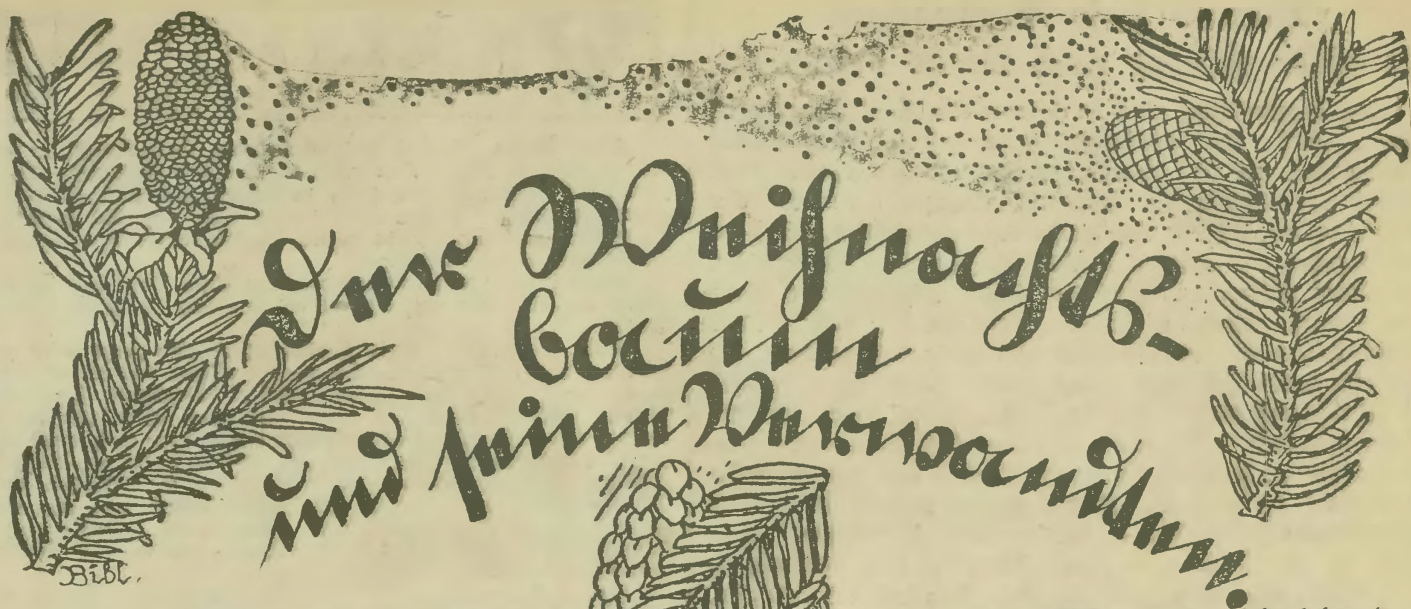 Der Weihnachts-
baum
und seine Verwandten.
Bibl.